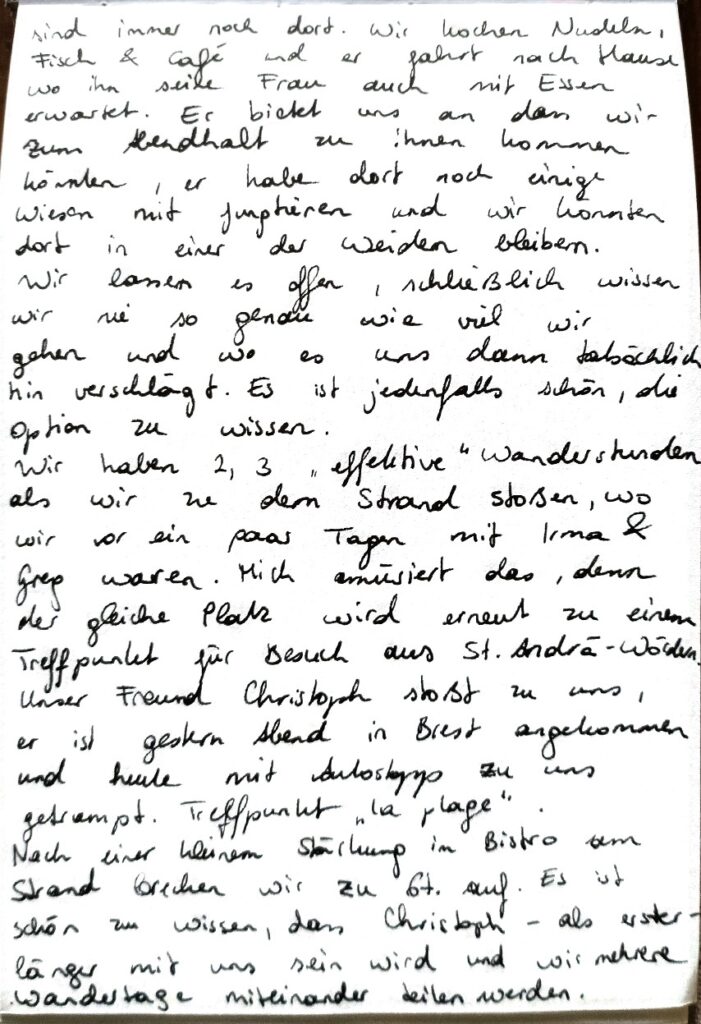 sind immer noch dort. Wir kochen Nudeln,
Fisch & Café und er fährt nach Hause
wo ihn seine Frau auch mit Essen
erwartet. Er bietet uns an dass wir
zum Abendhalt zu ihnen kommen
könnten, er habe dort noch einige
Wiesen mit Jungtieren und wir könnten
dort in einer der Weiden bleiben.
Wir lassen es offen, schließlich wissen
wir nie so genau wie viel wir
gehen und wo es uns dann tatsächlich
hin verschlägt. Es ist jedenfalls schön, die
Option zu wissen.
Wir haben 2, 3 „effektive“ Wanderstunden
als wir zu dem Strand stoßen, wo
wir vor ein paar Tagen mit Irma &
Greg waren. Mich amüsiert das, denn
der gleiche Platz wird erneut zu einem
Treffpunkt für Besuch aus St. Andrä-Wördern.
Unser Freund Christoph stoßt zu uns,
er ist gestern Abend in Brest angekommen
und heute mit Autostopp zu uns
getrampt. Treffpunkt „la plage“.
Nach einer kleinem Stärkung im Bistro am
Strand brechen wir zu 6t. auf. Es ist
schön zu wissen, dass Christoph - als erster -
länger mit uns sein wird und wir mehrere
Wandertage miteinander teilen werden.